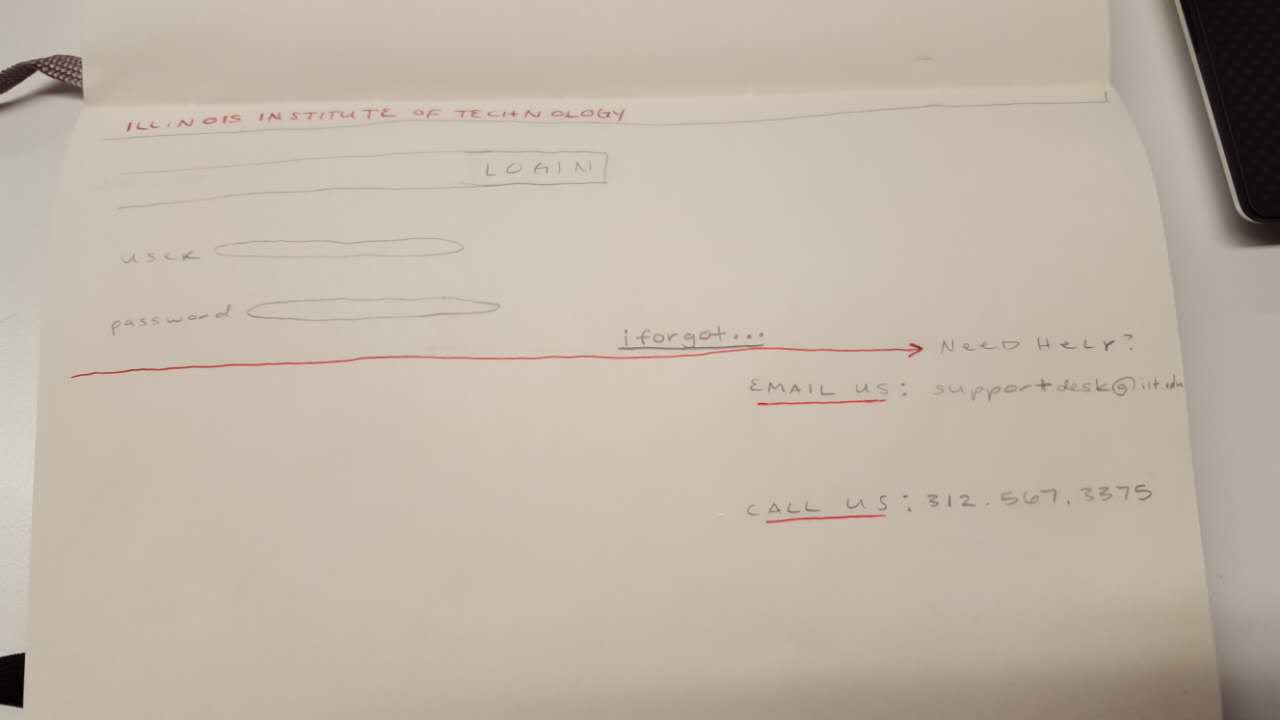 ILLINOIS INSTITUTE OF TECHNOLOGY
LOGIN
user
password
i forgot...
NEED HELP?
EMAIL US: supportdesk@iit.edu
CALL US: 312.567.3375